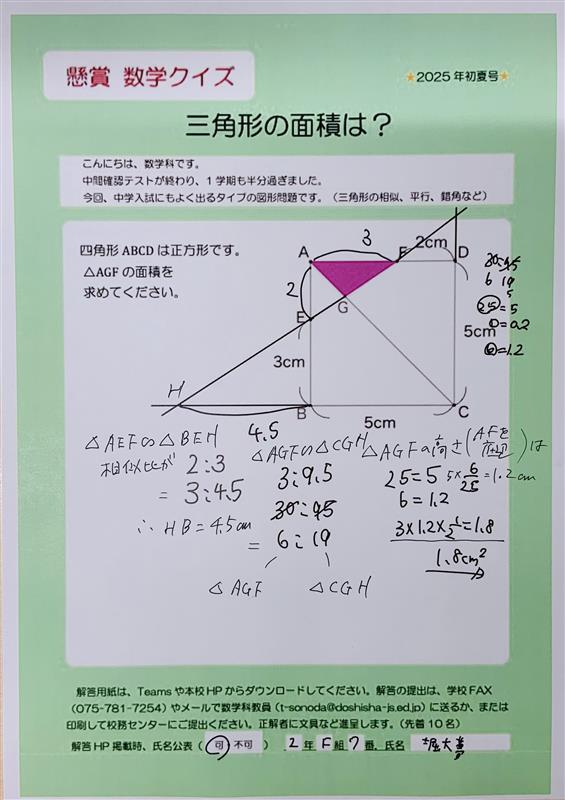 懸賞 数学クイズ
★2025年初夏号★
三角形の面積は？
こんにちは、数学科です。
中間確認テストが終わり、1学期も半分過ぎました。
今回、中学入試にもよく出るタイプの図形問題です。（三角形の相似、平行、錯角など）
四角形ABCDは正方形です。
△AGFの面積を
求めてください。
3
2cm
A
F
D
2
G
E
5cm
3cm
H
B
C
4.5
5cm
30:95
6 19
25=5
1=0.2
6=1.2
△AEFの△BEH
相似比が 2:3
=3:4.5
∴HB=4.5cm
△AGFの△CGH
3:9.5
30:95
=6:19
△AGF △CGH
△AGFの高さ(AFを底辺)は
25=5 5×6/25=1.2cm
6=1.2
3×1.2×1/2=1.8
1.8cm²
解答用紙は、Teamsや本校HPからダウンロードしてください。解答の提出は、学校FAX
(075-781-7254）やメールで数学科教員(t-sonoda@doshisha-js.ed.jp)に送るか、または
印刷して校務センターにご提出ください。正解者に文具など進呈します。（先着10名）
解答HP掲載時、氏名公表（ 可・不可 ） 2年 F組 7番、氏名